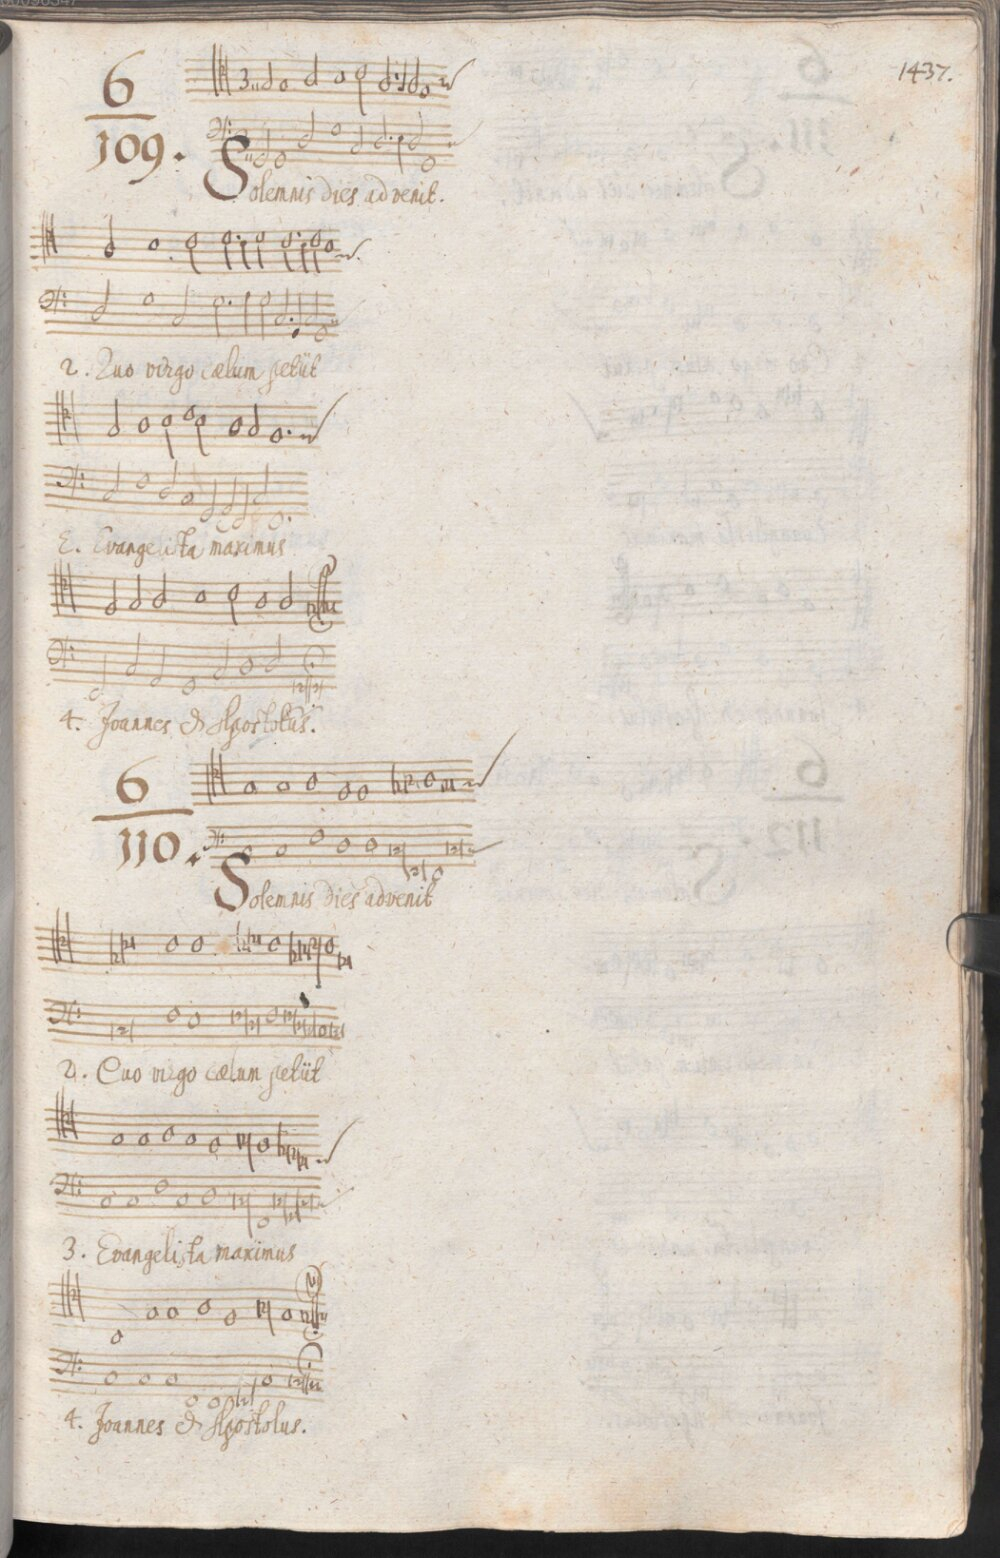 1437.
6
109.
3
Solemnis dies advenit.
2. Quo virgo cælum petiit
3. Evangelista maximus
4. Joannes & Apostolus.
6
110.
Solemnis dies advenit
2. Quo virgo cælum petiit
3. Evangelista maximus
4. Joannes & Apostolus.